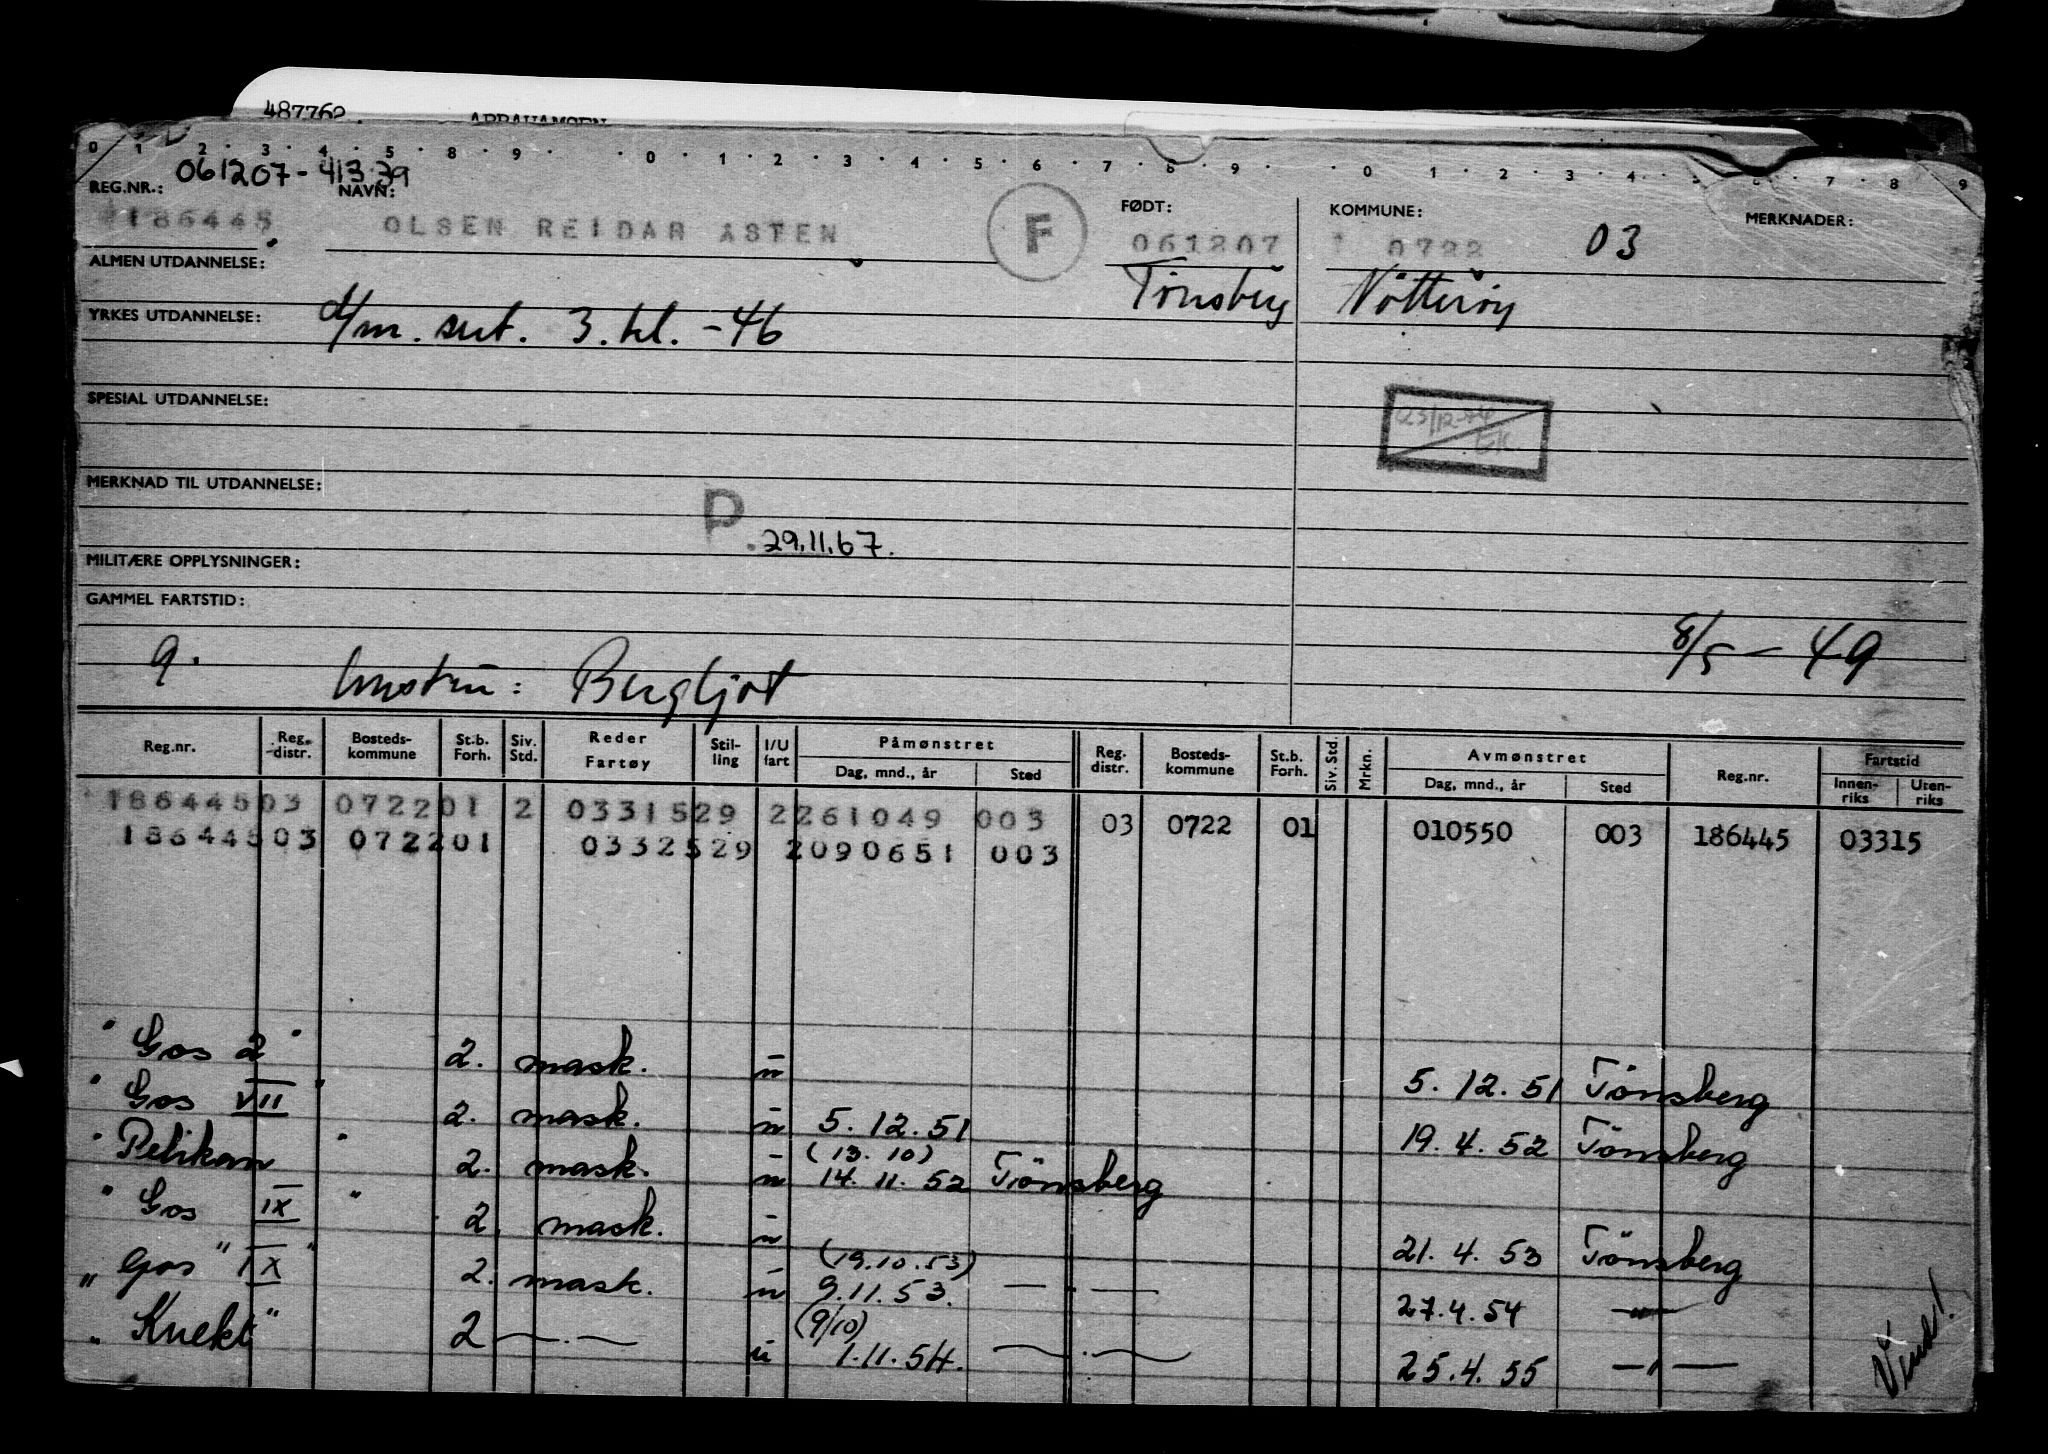 487762. ABRAHAMSEN
0 1 2 3 4 5 8 9 0 1 2 3 4 5 6 7 8 9 0 1 2 3 4 5 6 7 8 9
061207-41339
REG.NR.: NAVN: FØDT: KOMMUNE: MERKNADER:
186445 OLSEN REIDAR ASTEN F 061207 0722 03
ALMEN UTDANNELSE: Tønsberg Nötteröy
YRKES UTDANNELSE: 3. kl. -46
SPESIAL UTDANNELSE:
23/12-74
MERKNAD TIL UTDANNELSE:
P. 29.11.67.
MILITÆRE OPPLYSNINGER:
GAMMEL FARTSTID:
8/5-49
g. hustru: Bergljot
Reg.nr. Reg. distr. Bosteds-kommune St.b. Forh. Siv. Std. Reder Fartøy Stil-ling I/U fart Påmønstret Dag, mnd., år Sted Reg. distr. Bosteds-kommune St.b. Forh. Siv. Std. Mrkn. Avmønstret Dag, mnd., år Sted Reg.nr. Fartstid Innen-riks Uten-riks
186445 03 0722 01 2 0331529 2 261049 003 03 0722 01 010550 003 186445 03315
186445 03 0722 01 0332529 2 090651 003
"Gos 2" 2. mask. u 5.12.51 Tönsberg
"Gos VII" 2. mask. u 5.12.51 19.4.52 Tönsberg
(13.10)
"Pelikan" 2. mask. u 14.11.52 Tönsberg
"Gos IX" 2. mask. u 21.4.53 Tönsberg
(19.10.53)
"Gos" IX" 2. mask. u 9.11.53. — . — 27.4.54 —"—
(9/10)
"Knekt" 2 — . — u 1.11.54. — . — 25.4.55 —"—
Vend!